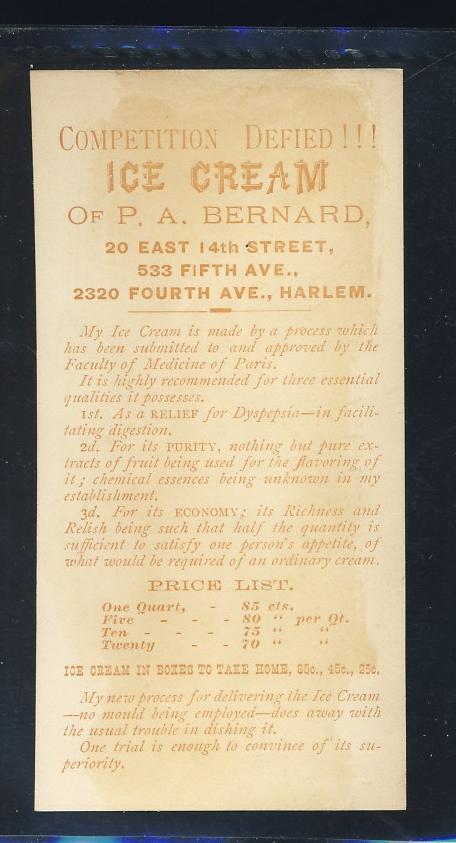 COMPETITION DEFIED!!!
ICE CREAM
OF P. A. BERNARD,
20 EAST 14th STREET,
533 FIFTH AVE.,
2320 FOURTH AVE., HARLEM.
My Ice Cream is made by a process which
has been submitted to and approved by the
Faculty of Medicine of Paris.
It is highly recommended for three essential
qualities it possesses.
1st. As a RELIEF for Dyspepsia—in facili-
tating digestion.
2d. For its PURITY, nothing but pure ex-
tracts of fruit being used for the flavoring of
it; chemical essences being unknown in my
establishment.
3d. For its ECONOMY; its Richness and
Relish being such that half the quantity is
sufficient to satisfy one person's appetite, of
what would be required of an ordinary cream.
PRICE LIST.
One Quart, - 85 cts.
Five - - - 80 " per Qt.
Ten - - - - 75 " "
Twenty - - 70 " "
ICE CREAM IN BOXES TO TAKE HOME, 85c., 45c., 25c.
My new process for delivering the Ice Cream
—no mould being employed—does away with
the usual trouble in dishing it.
One trial is enough to convince of its su-
periority.